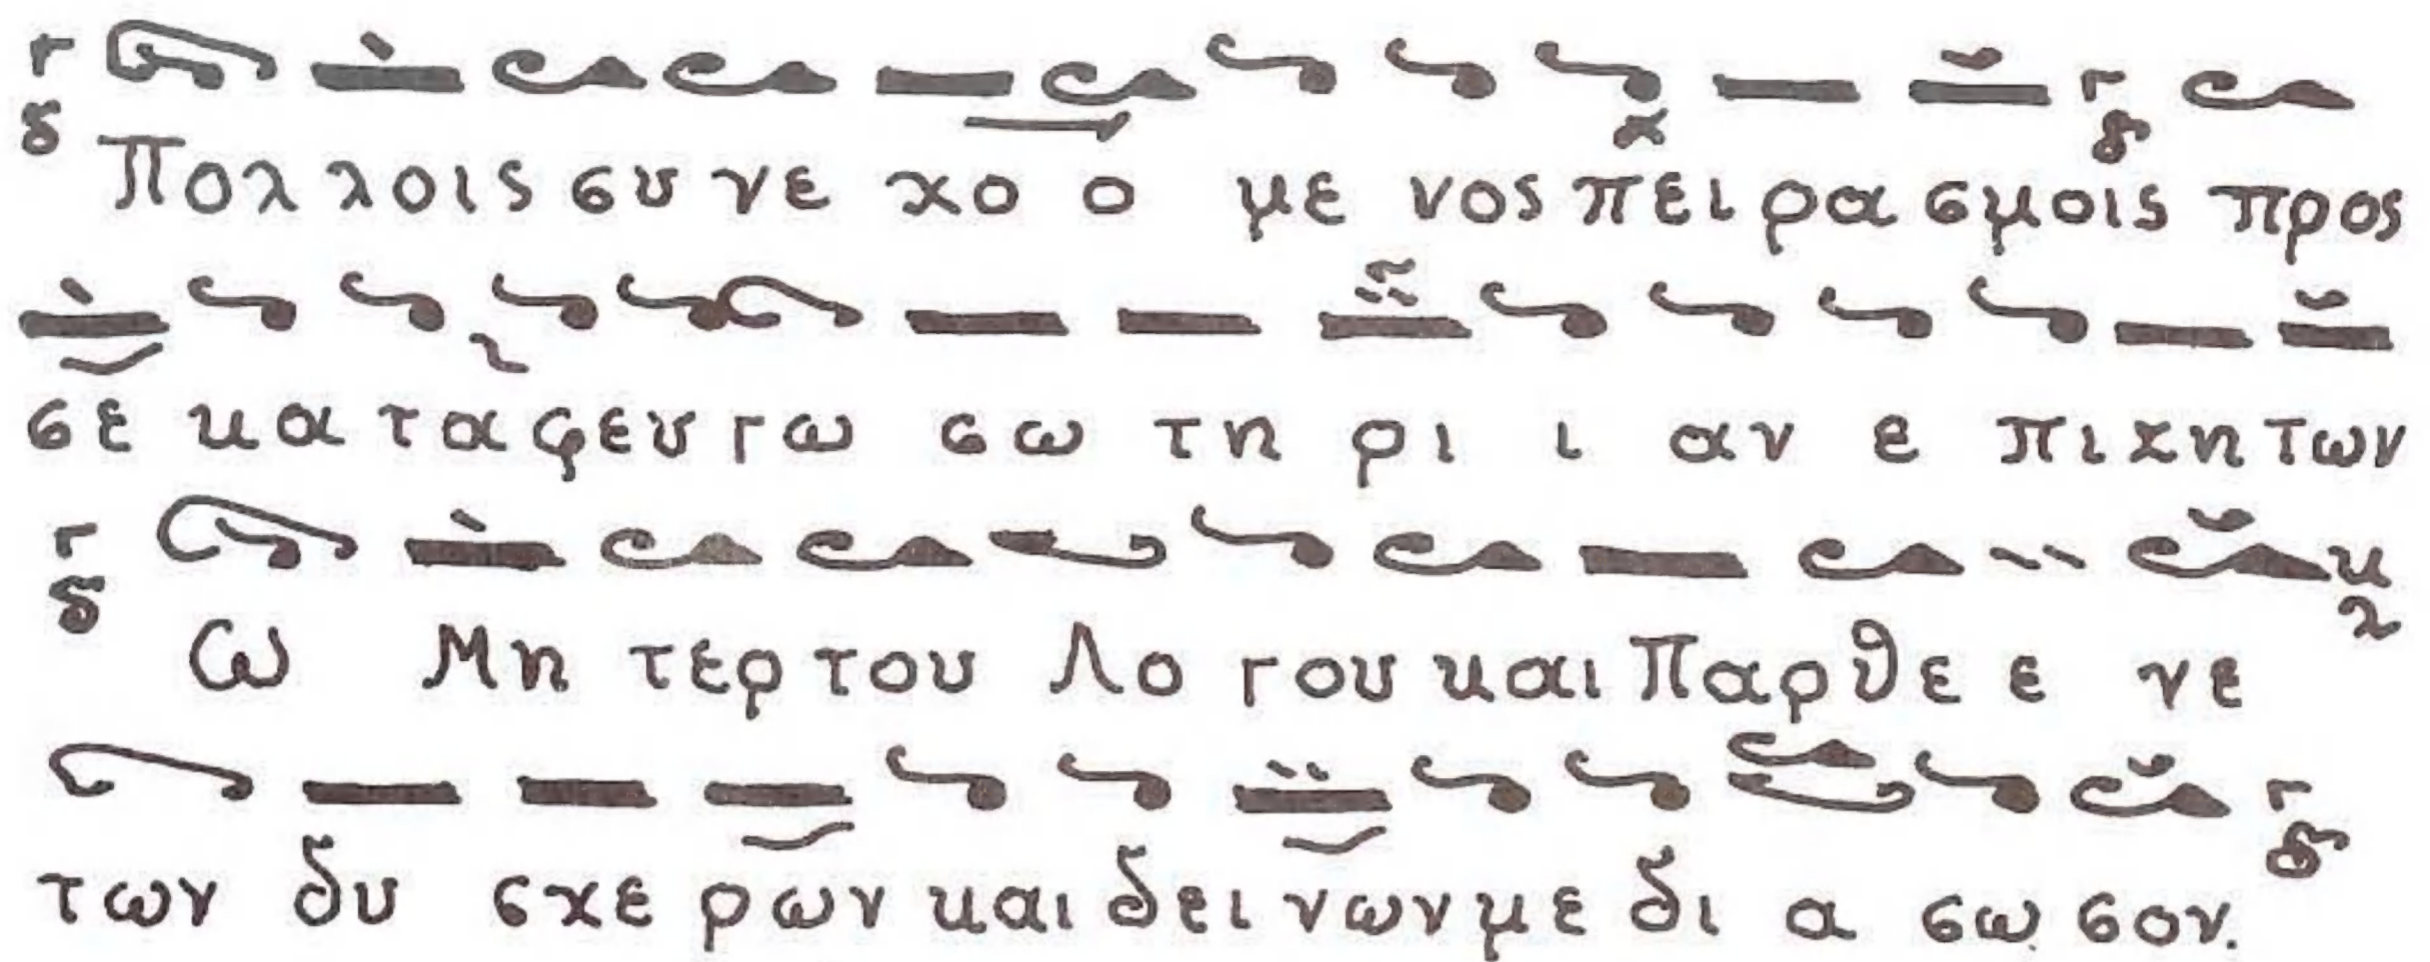 Πολλοις συνεχοομενος πειρασμοις προς
σε καταφευγω σωτηριιαν επιζητων
Ω Μητερ του Λογου και Παρθεενε
των δυσχερων και δεινων με διασωσον.